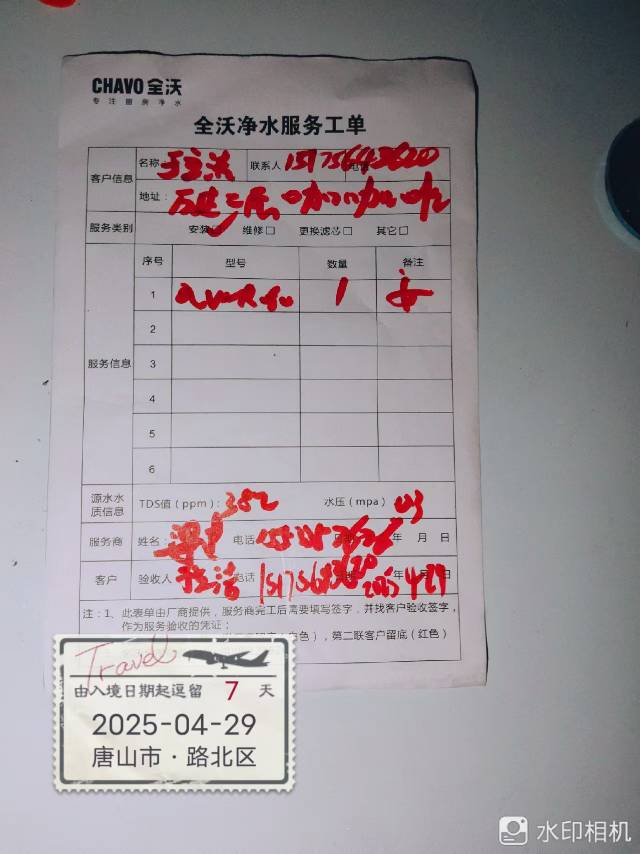 CHAVO 全沃
专注厨房净水
全沃净水服务工单
客户信息 名称: 联系人 15175643620
地址: 万达二层
服务类别 安装☑ 维修□ 更换滤芯□ 其它□
服务信息 序号 型号 数量 备注
1 1
2
3
4
5
6
源水水质信息 TDS值(ppm): 382 水压(mpa)
服务商 姓名: 电话 年 月 日
客户 验收人 电话 15175643620 年 月 日
注:1、此表单由厂商提供,服务商完工后需要填写签字,并找客户验收签字,
作为服务验收的凭证;
色),第二联客户留底(红色)
Travel
由入境日期起逗留 7 天
2025-04-29
唐山市·路北区
水印相机